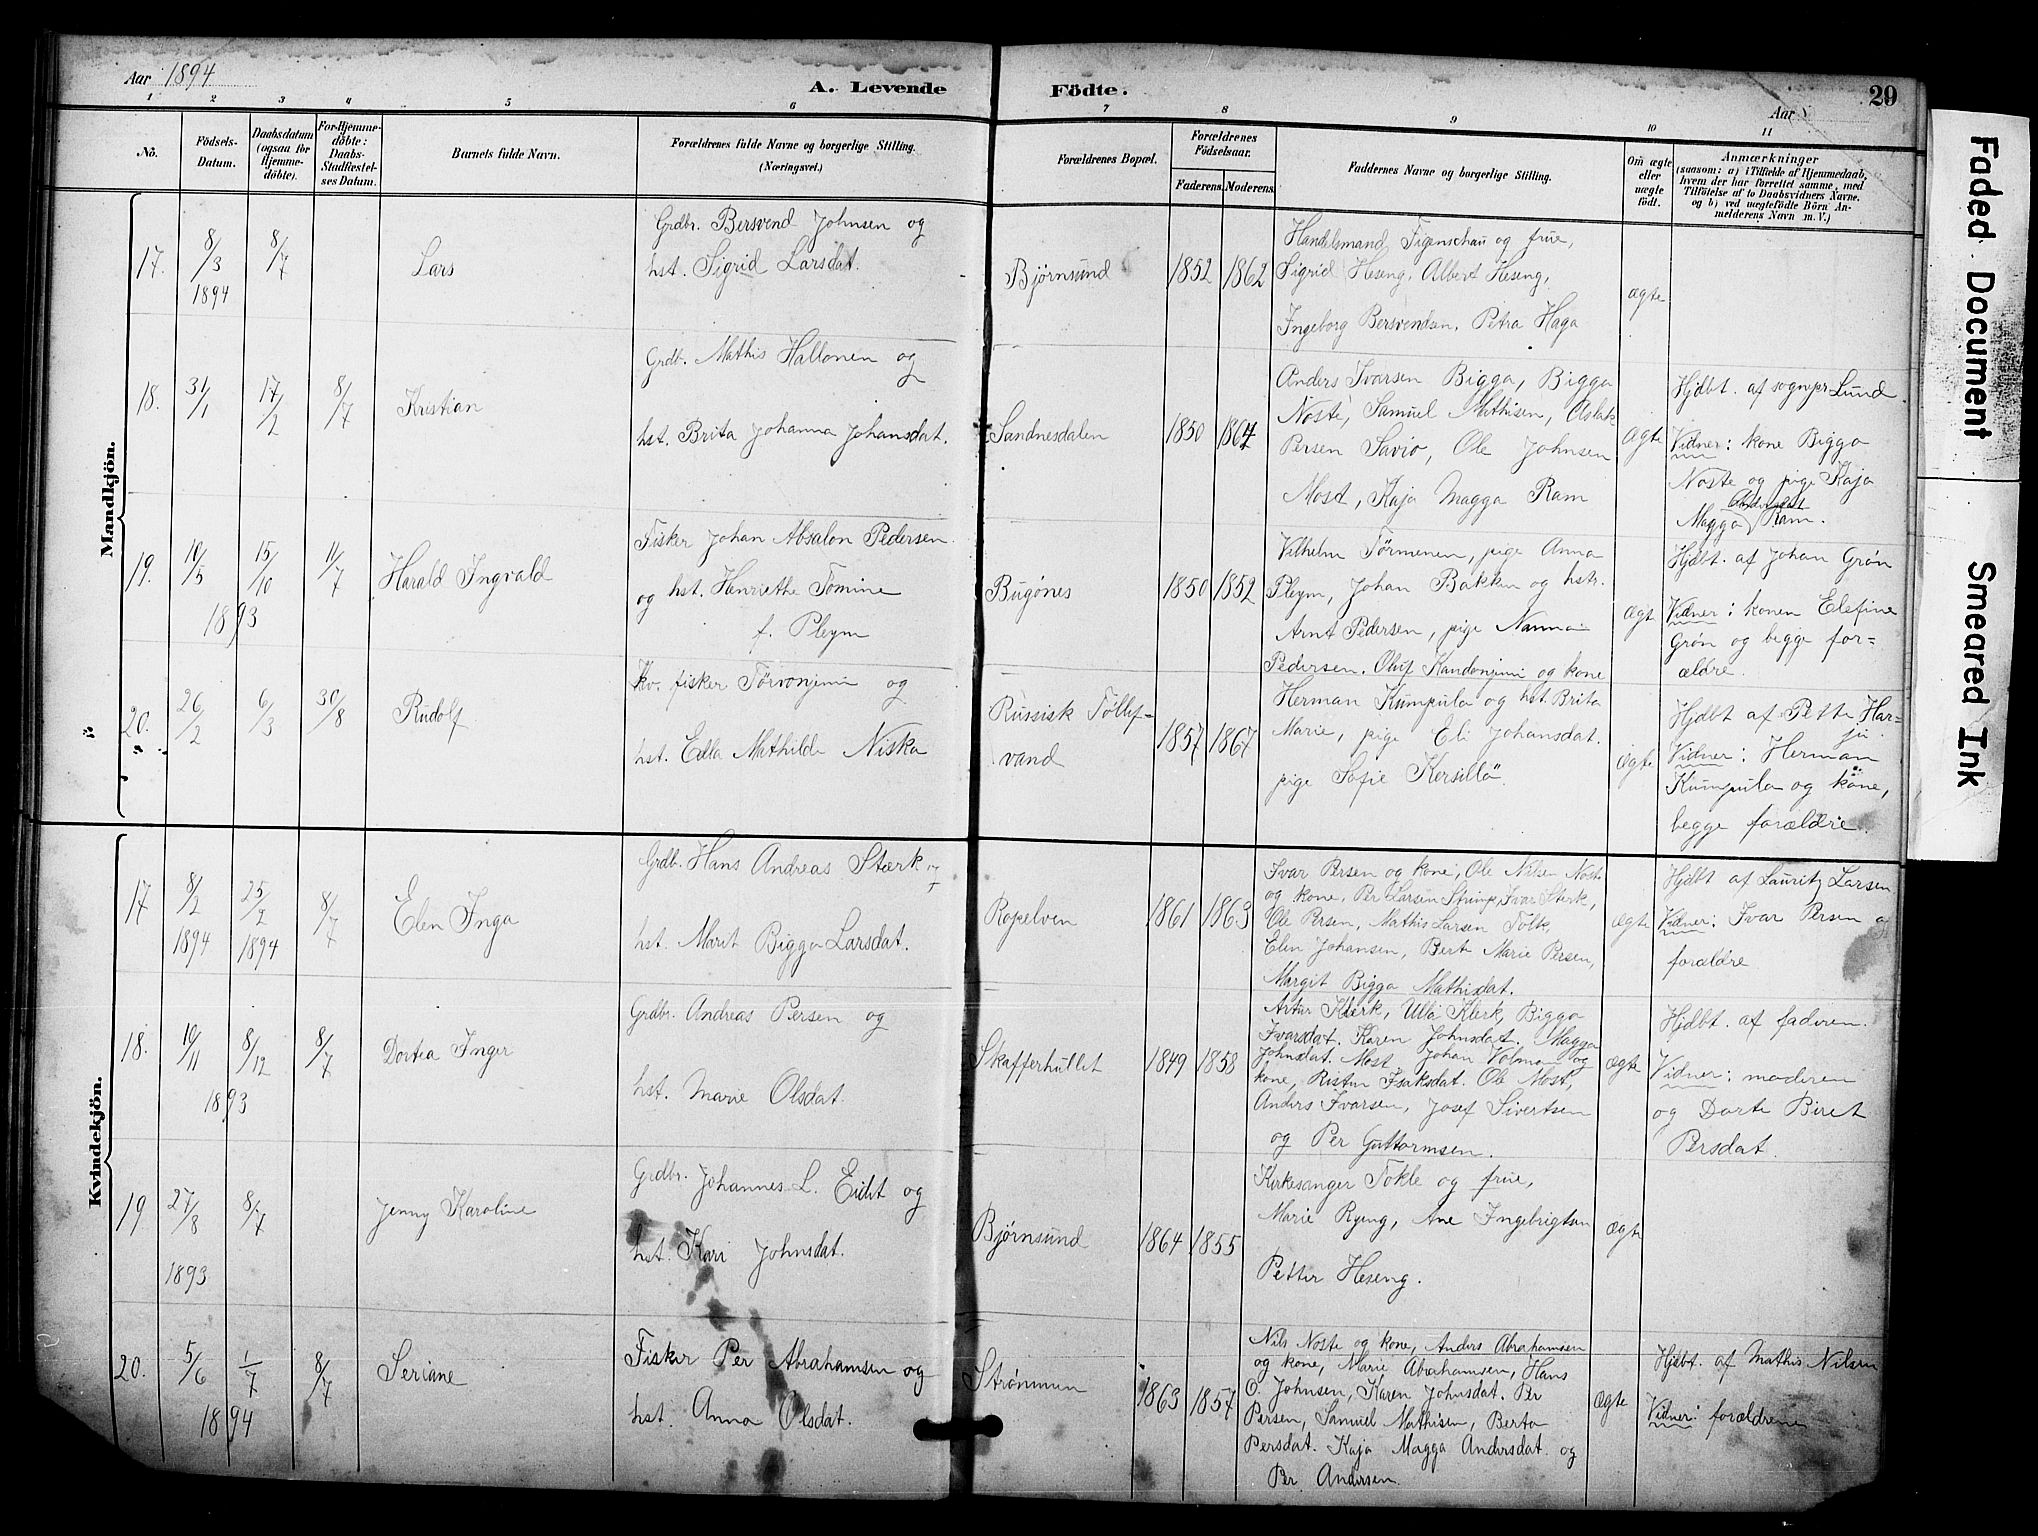 Aar 1894
A. Levende Födte.
Aar
29
1 2 3 4 5 6 7 8 9 10 11
No.
Födsels-
Datum.
Daabsdatum
(ogsaa for
Hjemme-
döbte).
For Hjemme-
döbte:
Daabs-
Stadfæstel-
ses Datum.
Barnets fulde Navn.
Forældrenes fulde Navne og borgerlige Stilling.
(Næringsvei.)
Forældrenes Bopæl.
Forældrenes
Födselsaar.
Faderens. Moderens.
Faddernes Navne og borgerlige Stilling.
Om ægte
eller
uægte
födt.
Anmærkninger
(saasom: a) i Tilfælde af Hjemmedaab,
hvem der har forrettet samme, med
Tilföielse af to Daabsvidners Navne.
og b) ved uægtefödte Börn An-
melderens Navn m. V.)
Mandkjön.
17. 8/3 1894 8/7 Lars
Grdbr. Bersvend Johnsen og
hst. Sigrid Larsdat.
Bjørnsund 1852 1862
Handelsmand Figenschau og frue,
Sigrid Heseng, Albert Heseng,
Ingeborg Bersvendsen, Petra Haga
ægte
18. 31/1 17/2 8/7 Kristian
Grdb. Mathis Hallonen og
hst. Brita Johanna Johansdat.
Sandnesdalen 1850 1864
Anders Ivarsen Bigga, Bigga
Noste, Samuel Mathisen, Aslak
Persen Savio, Ole Johnsen
Most, Kaja Magga Ram
ægte
Hjdbt. af sognepr. Lund.
Vidner: kone Bigga
Noste og pige Kaja
Andersdat
Magga Ram.
19. 10/5 15/10 1893 11/7 Harald Ingvald
Fisker Johan Absalon Pedersen
og hst. Henriethe Tomine
f. Pleym
Bugønes 1850 1852
Vilhelm Törmenen, pige Anna
Pleym, Johan Bakken og hstr.
Arnt Pedersen, pige Nanna
Pedersen. Oluf Kandonjimi og kone
ægte
Hjdbt. af Johan Grøn
Vidner: konen Elefine
Grøn og begge for-
ældre.
20. 26/2 6/3 30/8 Rudolf
Kv. fisker Törvonjemi og
hst. Edla Mathilde Niska
Russisk Tollef-
vand 1857 1867
Herman Kumpula og hst. Brita
Marie, pige Eli Johansdat.
pige Sofie Korsillö.
ægte
Hjdbt af Petter Har-
ju.
Vidner: Herman
Kumpula og kone,
begge forældre.
Kvindekjön.
17 8/2 1894 25/2 1894 8/7 Elen Inga
Grdb. Hans Andreas Stærk og
hst. Marit Bigga Larsdat.
Ropelven 1861 1863
Ivar Persen og kone, Ole Nilsen Noste
og kone, Per Larsen Strimp, Ivar Sterk,
Ole Persen, Mathis Larsen Tolk,
Elen Johansen, Bert Marie Persen,
Margit Bigga Mathisdat.
ægte
Hjdbt af Lauritz Larsen
Vidner: Ivar Persen og
forældre
18. 10/11 8/12 1893 8/7 Dortea Inger
Grdbr. Andreas Persen og
hst. Marie Olsdat.
Skafferhullet 1849 1858
Artur Klerk, Ulla Klerk, Bigga
Ivarsdat. Karen Johnsdat. Magga
Johnsdat. Most Johan Volman og
kone, Risten Isaksdat. Ole Most,
Anders Ivarsen, Josef Sivertsen
og Per Guttormsen.
ægte
Hjdbt. af faderen.
Vidner: moderen
og Dorte Biret
Persdat.
19. 27/8 1893 8/7 Jenny Karoline
Grdbr. Johannes L. Eidet og
hst. Kari Johnsdat.
Bjørnsund 1864 1855
Kirkesanger Tokle og frue,
Marie Ryeng, Ane Ingebrigtsen
Petter Heseng.
ægte
20. 5/6 1/7 1894 8/7 Seriane
Fisker Per Abrahamsen og
hst. Anna Olsdat.
Strømmen 1863 1857
Nils Noste og kone, Anders Abrahamsen
og kone, Marie Abrahamsen, Hans
O. Johnsen, Karen Johnsdat. Per
Persen, Samuel Mathisen, Berta
Persdat. Kaja Magga Andersdat. og
Per Andersen.
ægte
Hjdbt. af Mathis Nilsen
Vidner: forældrene
Faded Document
Smeared Ink